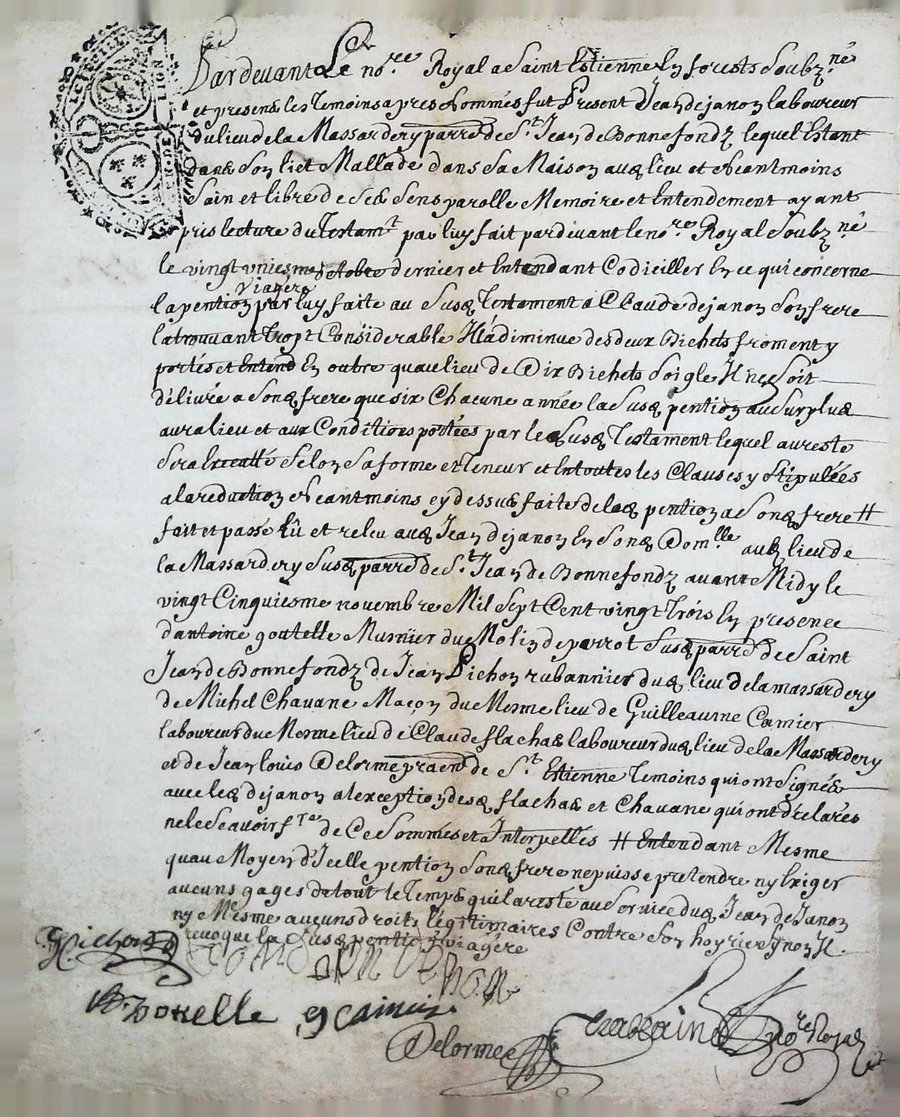 Pardevant Le no.re Royal a Saint Estienne En forests Soubz.né
et presens les Temoins apres Nommés fut Present Jean dejanon laboureur
du lieu de la Massardery parre de S.t Jean de Bonnefondz lequel Estant
dans Son liet Mallade dans Sa Maison aud lieu et Neantmoins
Sain et libre de Ses Sens parolle Memoire et Entendement ayant
pris lecture du Testam.t par luy fait pardevant le no.re Royal Soubz.né
le vingt uniesme octobre dernier et Entendant Codiciller En ce qui concerne
viagere
la pention par luy faite au Susd Testament a Claude dejanon Son frere
la trouvant Tropt Considerable Il a diminue des deux Bichets froment y
portés et Entend En outre quau lieu de Dix Bichets Soigle Il ne Soit
délivré a Sond frere que Six Chacune année la Susd pention au Surplus
aura lieu et aux Conditions portées par led Susd Testament lequel au reste
Sera Executté Selon Sa forme et Teneur et En toutes les Clauses y Stipulées
a la reduction Neantmoins cy dessus faite de lad pention a Sond frere #
fait et passé Lû et releu aud Jean dejanon En Sond Dom.lle aud lieu de
la Massardery Susd parre de S.t Jean de Bonnefondz avant Midy le
vingt Cinquiesme novembre Mil Sept Cent vingt Trois En presence
dantoine goutelle Musnier du Molin de parrot Susd parre de Saint
Jean de Bonnefondz de Jean Pichon rubannier dud lieu de la massardery
de Michel Chavane Maçon du Mesme lieu de Guilleaume Camier
laboureur du Mesme lieu de Claude flachas laboureur dud lieu de la Massardery
et de Jean louis Delorme pratn de S.t Estienne Temoins qui ont Signés
avec led dejanon a lexception desd flachas et Chavane qui ont declarés
ne le Scavoir f.re de Ce Sommés et Interpellés # Entendant Mesme
quau Moyen d'Icelle pention Sond frere ne puisse pretendre ny Exiger
aucuns gages de tout le Temps quil a resté au Service dud Jean de Janon
ny Mesme aucuns droits légitimaires Contre Son hoyrie Synon Il
revoque la Susd pention viagere
Pichon
Delorme
no.re Royal